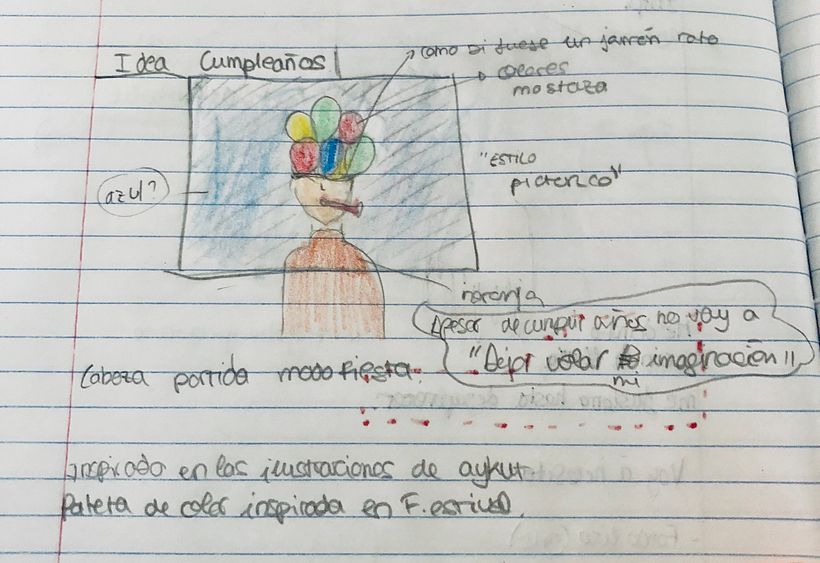 Idea Cumpleaños
como si fuese un jarrón roto
colores
mostaza
"ESTILO
pictórico"
azul?
naranja
Apesar de cumplir años no voy a
"Dejar volar mi imaginación"
Cabeza partida modo fiesta.
inspirado en las ilustraciones de aykut
Paleta de color inspirada en F.